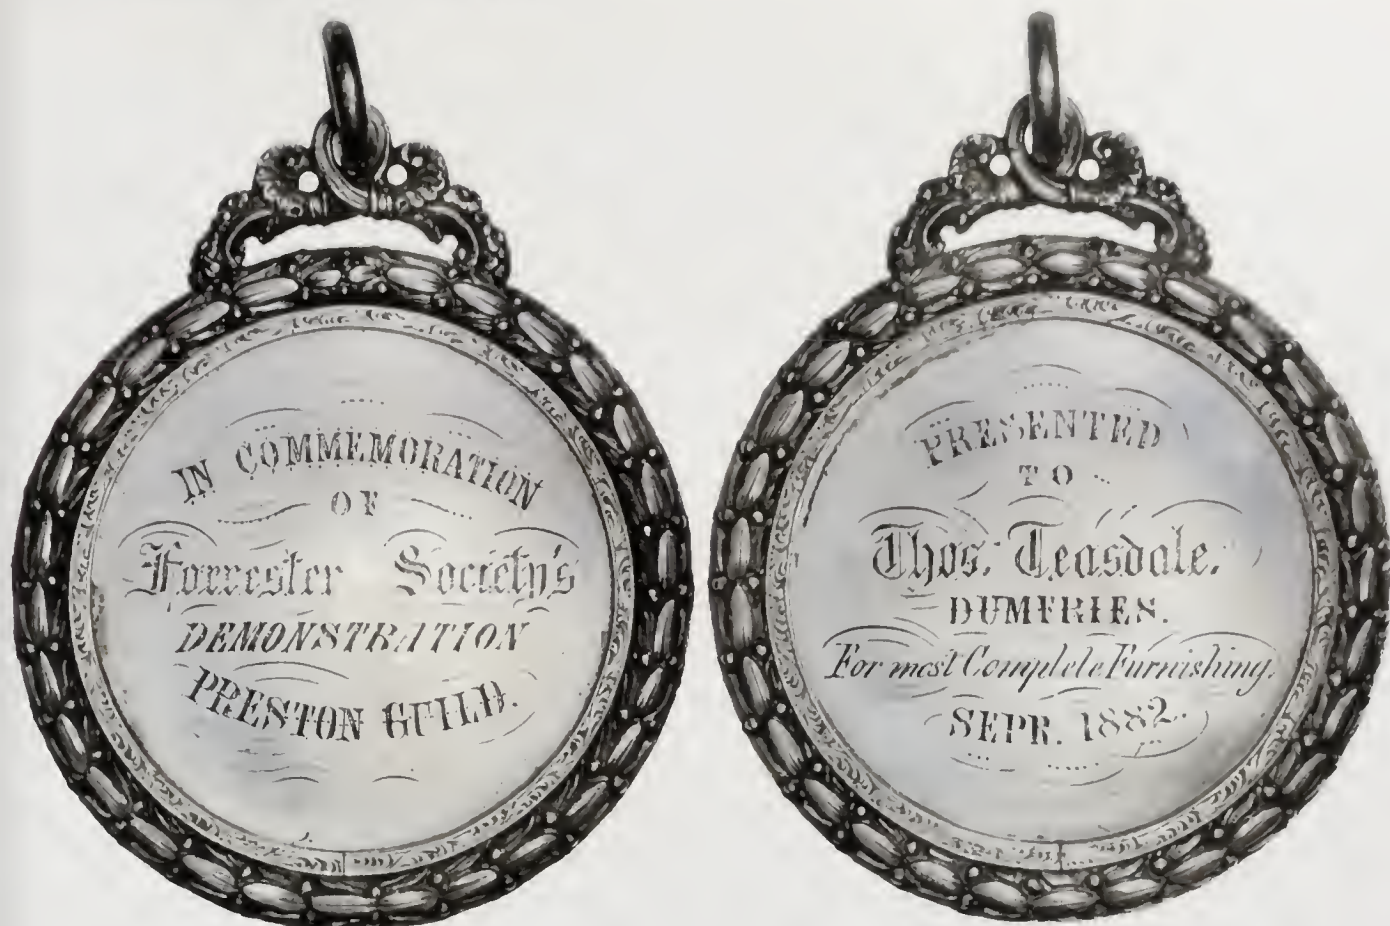 IN COMMEMORATION
OF
Forrester Society's
DEMONSTRATION
PRESTON GUILD.
PRESENTED
TO
Thos. Teasdale.
DUMFRIES.
For most Complete Furnishing.
SEPR. 1882.